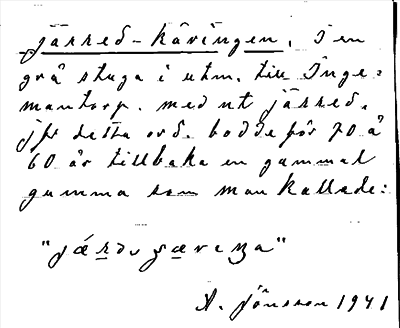 järred-käringen. I en
grå stuga i utm. till Inge-
mantorp. med nt järred.
jfr detta ord. bodde för 70 à
60 år tillbaka en gammal
gumma som man kallade:
A. Jönsson 1941